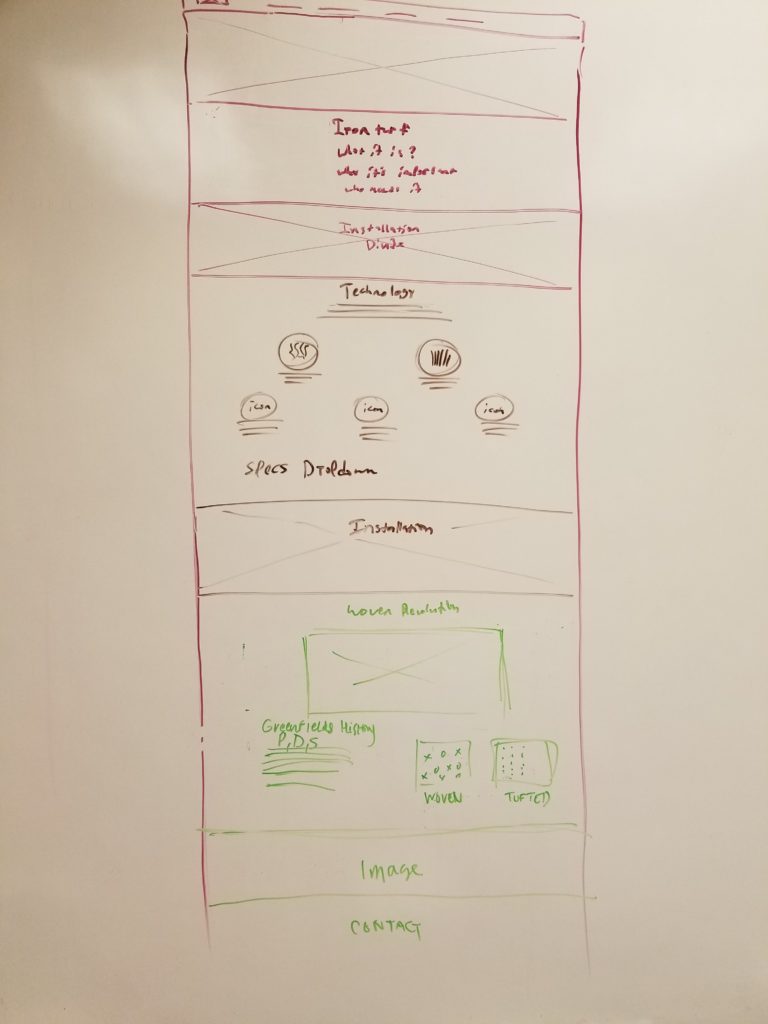 Iron turf
What it is?
Why it's important
who needs it
Installation
Divide
Technology
icon
icon
icon
Specs Dropdown
Installation
Woven Revolution
Greenfields History
P, D, S
WOVEN
TUFTED
Image
CONTACT